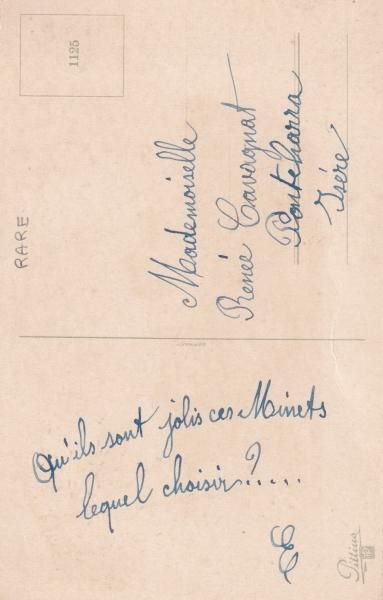 Qu'ils sont jolis ces Minets
lequel choisir ?.....
E
RARE
1125
Mademoiselle
Renée Cavagnat
Pontcharra
Isère